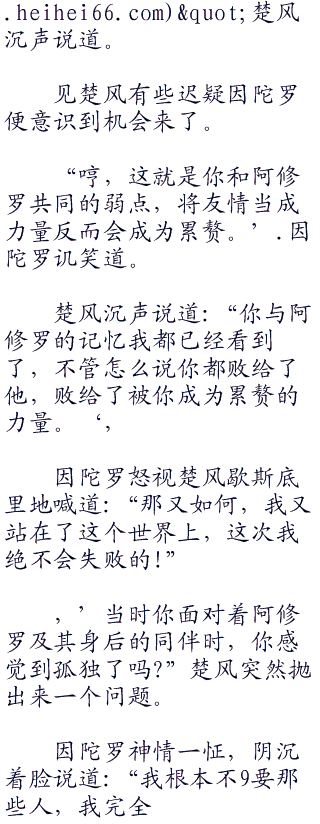 .heihei66.com)&quot;楚风
沉声说道。
见楚风有些迟疑因陀罗
便意识到机会来了。
“哼，这就是你和阿修
罗共同的弱点，将友情当成
力量反而会成为累赘。’.因
陀罗讥笑道。
楚风沉声说道：“你与阿
修罗的记忆我都已经看到
了，不管怎么说你都败给了
他，败给了被你成为累赘的
力量。‘，
因陀罗怒视楚风歇斯底
里地喊道：“那又如何，我又
站在了这个世界上，这次我
绝不会失败的!”
，’当时你面对着阿修
罗及其身后的同伴时，你感
觉到孤独了吗?”楚风突然抛
出来一个问题。
因陀罗神情一怔，阴沉
着脸说道：“我根本不9要那
些人，我完全